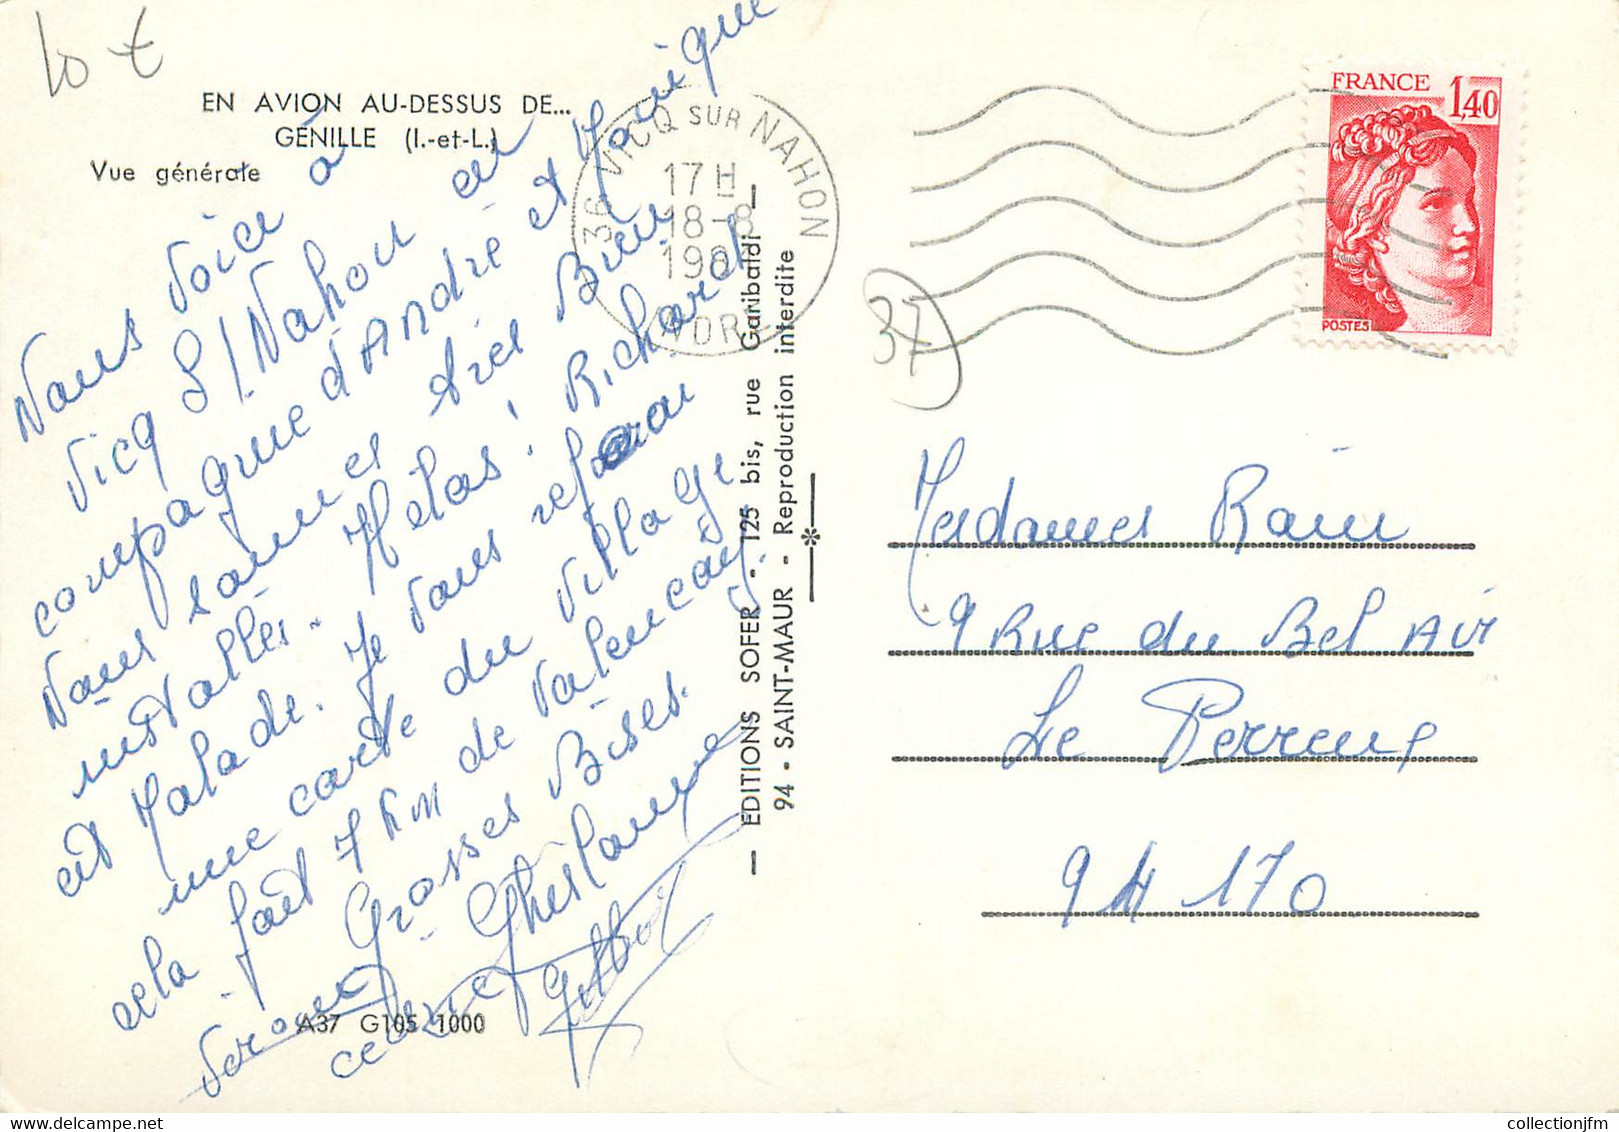 10 €
EN AVION AU-DESSUS DE...
GENILLE (I.-et-L.)
Vue générale
Nous voici à
Vicq S/Nahon en
compagnie d'André et Monique
Nous sommes très bien
installés. Hélas! Richard
est Malade. Je vous referai
une carte du village
cela fait 7 km de Valençay.
Grosses Bises.
Ghislaine
A37 G105 1000
36 VICQ SUR NAHON
17 H
18-8
INDRE
EDITIONS SOFER - 125 bis, rue Garibaldi
94 - SAINT-MAUR - Reproduction interdite
37
FRANCE 1,40
POSTES
Mesdames Rain
9 Rue du Bel Air
Le Perreux
94170
collectionjfm